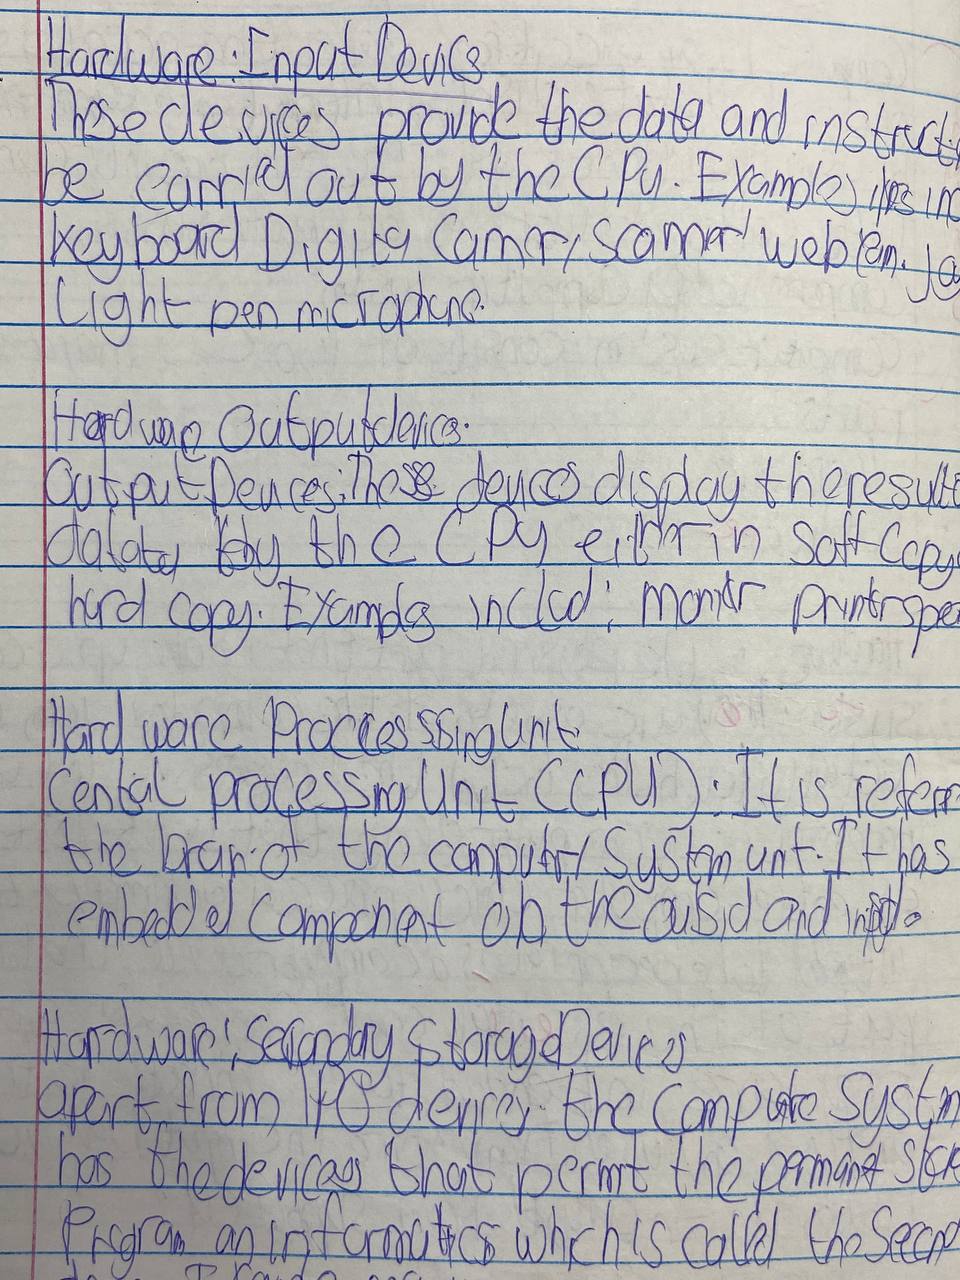 Hardware: Input Devics
These devices provide the data and instruct
be carried out by the CPU. Examples
keyboard Digita Camer, Scanner web Cam.
Light pen microphone.
Hardware Output device.
Output Devices: These devices display the result
by the CPU either in Soft Copy
hard copy. Exampls includ: monitr printr spe
Hard ware Proccesssing unit
Cental processing Unit (CPU): It is referr
the brain of the computer/ System unit. It has
embedded Component on the ousid and
Hardware: Secondary Storage Devices
apart from I/O devices the Compute System
has the devices that permit the permant
Program an informatics which is called the Secon